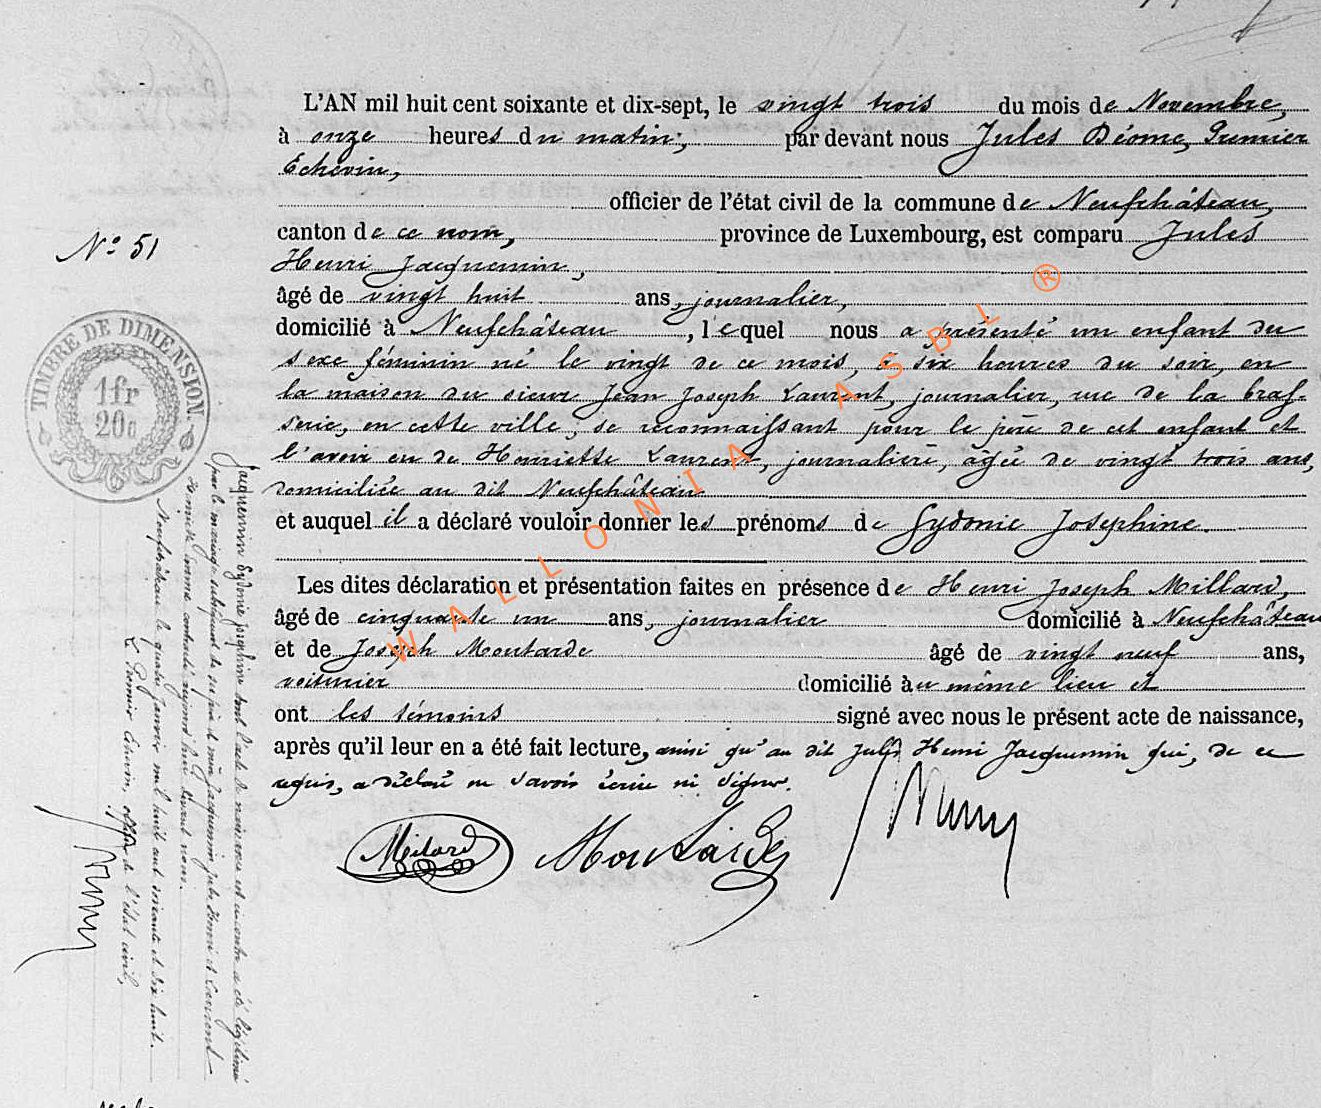 L'AN mil huit cent soixante et dix-sept, le vingt trois du mois de Novembre,
à onze heures du matin, par devant nous Jules Déome, Premier
Echevin,
officier de l'état civil de la commune de Neufchâteau,
canton de ce nom, province de Luxembourg, est comparu Jules
Henri Jacquemin,
âgé de vingt huit ans, journalier,
domicilié à Neufchâteau, lequel nous a présenté un enfant du
sexe féminin né le vingt de ce mois, à six heures du soir, en
la maison du sieur Jean Joseph Laurent, journalier, rue de la bras-
serie, en cette ville, se reconnaissant pour le père de cet enfant et
l'avoir eu de Henriette Laurent, journalière, âgée de vingt trois ans,
domiciliée au dit Neufchâteau
et auquel il a déclaré vouloir donner les prénoms de Sydonie Josephine.
Les dites déclaration et présentation faites en présence de Henri Joseph Millard,
âgé de cinquante un ans, journalier domicilié à Neufchâteau
et de Joseph Moutarde âgé de vingt neuf ans,
voiturier domicilié au même lieu et
ont les témoins signé avec nous le présent acte de naissance,
après qu'il leur en a été fait lecture, ainsi qu'au dit Jules Henri Jacquemin qui, de ce
requis, a déclaré ne savoir écrire ni signer.
Milard Moutarde
N° 51
TIMBRE DE DIMENSION.
1fr
20c
Jacquemin Sydonie josephine dont l'acte de naissance est ci-contre a été légitimée
par le mariage subséquent de ses père et mère Jacquemin jules Henri et Laurent
Henriette contracté aujourd'hui devant nous.
Neufchâteau le quatre janvier mil huit cent soixante et dix huit.
Le Premier Echevin, officier de l'état civil,
WALLONIA ASBL ®